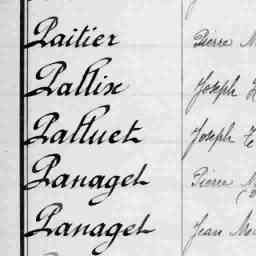 Paitier Pierre M
Pallix Joseph
Palluet Joseph
Panaget Pierre
Panaget Jean